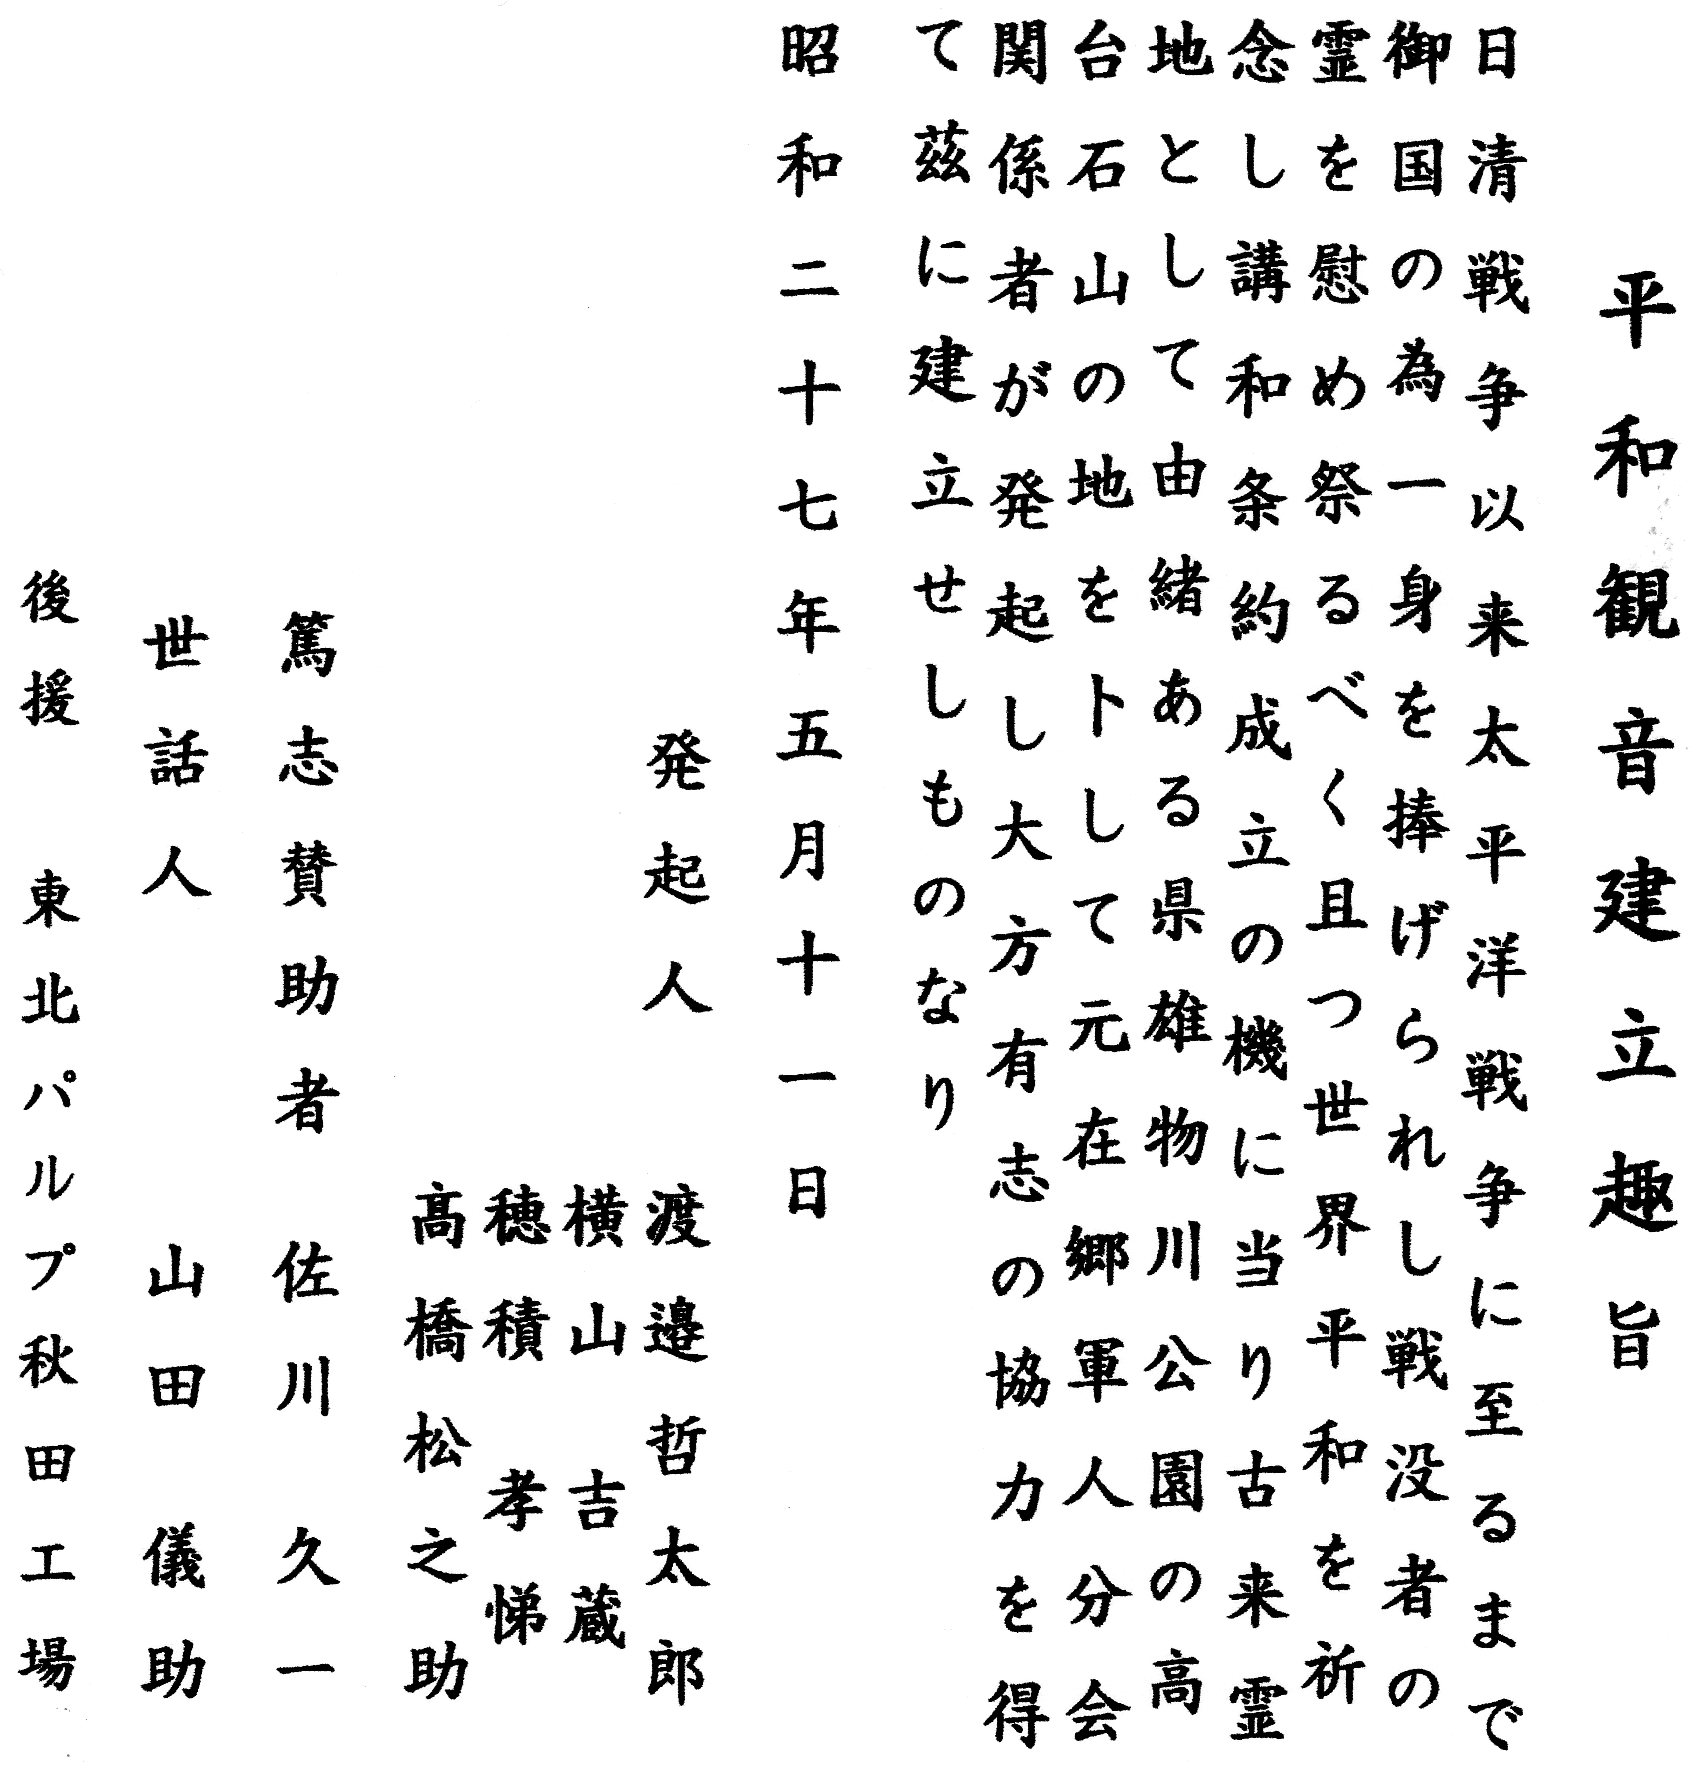 平和観音建立趣旨
日清戦争以来太平洋戦争に至るまで
御国の為一身を捧げられし戦没者の
霊を慰め祭るべく且つ世界平和を祈
念し講和条約成立の機に当り古来霊
地として由緒ある県雄物川公園の高
台石山の地をトして元在郷軍人分会
関係者が発起し大方有志の協力を得
て茲に建立せしものなり
昭和二十七年五月十一日
発起人 渡邉哲太郎
横山吉蔵
穂積孝悌
髙橋松之助
篤志賛助者 佐川久一
世話人 山田儀助
後援 東北パルプ秋田工場